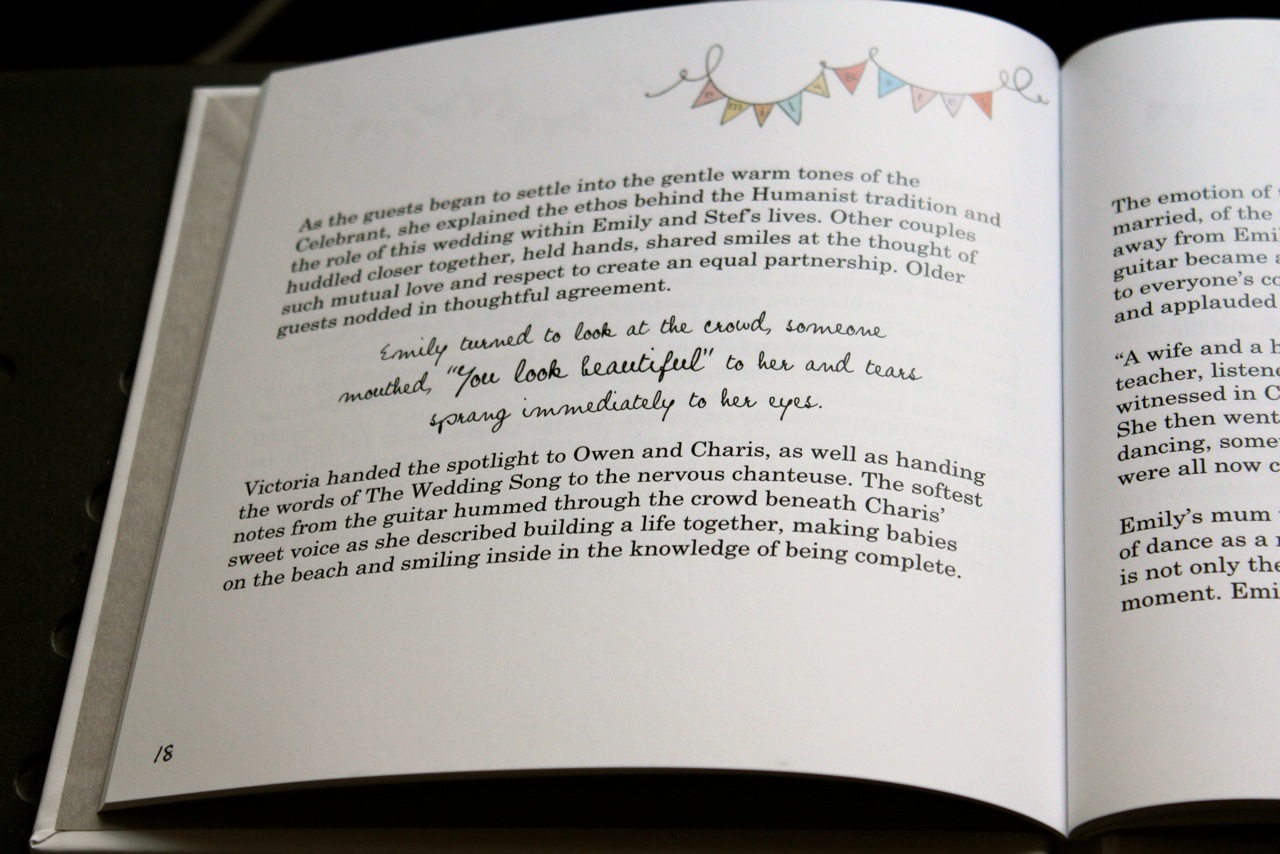 emily & stef
As the guests began to settle into the gentle warm tones of the
Celebrant, she explained the ethos behind the Humanist tradition and
the role of this wedding within Emily and Stef's lives. Other couples
huddled closer together, held hands, shared smiles at the thought of
such mutual love and respect to create an equal partnership. Older
guests nodded in thoughtful agreement.
Emily turned to look at the crowd, someone
mouthed, "You look beautiful" to her and tears
sprang immediately to her eyes.
Victoria handed the spotlight to Owen and Charis, as well as handing
the words of The Wedding Song to the nervous chanteuse. The softest
notes from the guitar hummed through the crowd beneath Charis'
sweet voice as she described building a life together, making babies
on the beach and smiling inside in the knowledge of being complete.
18
The emotion of
married, of the
away from
guitar became
to everyone's
and applauded
“A wife and a
teacher,
witnessed in
She then went
dancing,
were all now
Emily's mum
of dance as a
is not only the
moment.